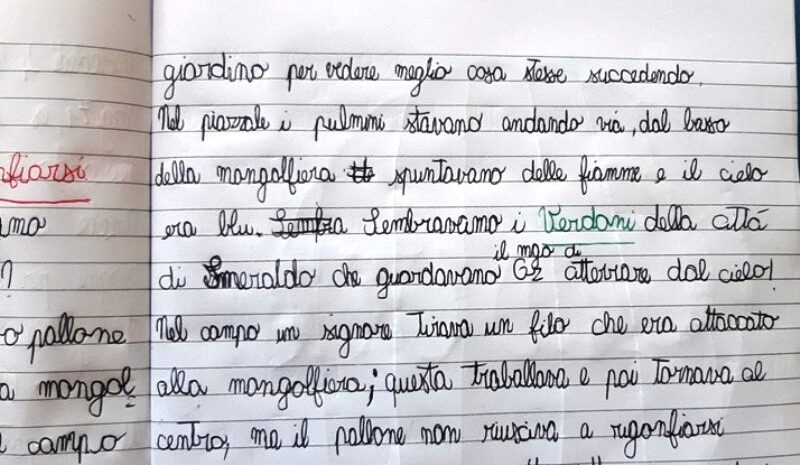 fiarsi
amo
?
o pallone
a mongol
campo
giardino per vedere meglio cosa stesse succedendo.
Nel piazzale i pulmini stavano andando via, dal basso
della mongolfiera spuntavano delle fiamme e il cielo
era blu. Sembra Sembravamo i Verdoni della città
il mgo di
di Smeraldo che guardavano Oz atterrare dal cielo!
Nel campo un signore tirava un filo che era attaccato
alla mongolfiera; questa traballava e poi tornava al
centro; ma il pallone non riusciva a rigonfiarsi